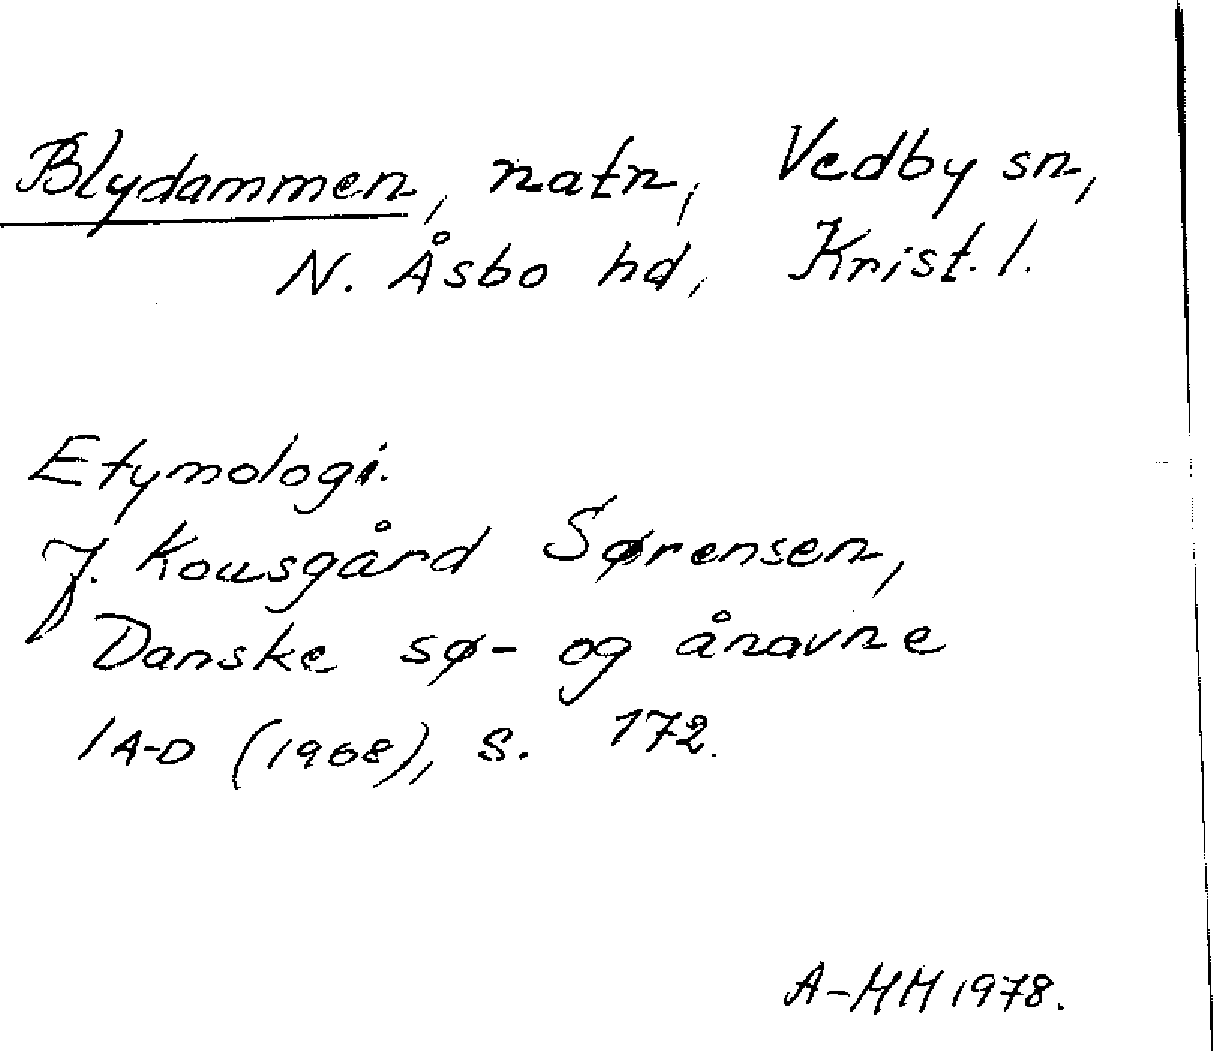 Blydammen, natn, Vedby sn,
N. Åsbo hd, Krist. l.
Etymologi.
J. Kousgård Sørensen,
Danske sø- og ånavne
1 A-D (1968), s. 172.
A-MH 1978.